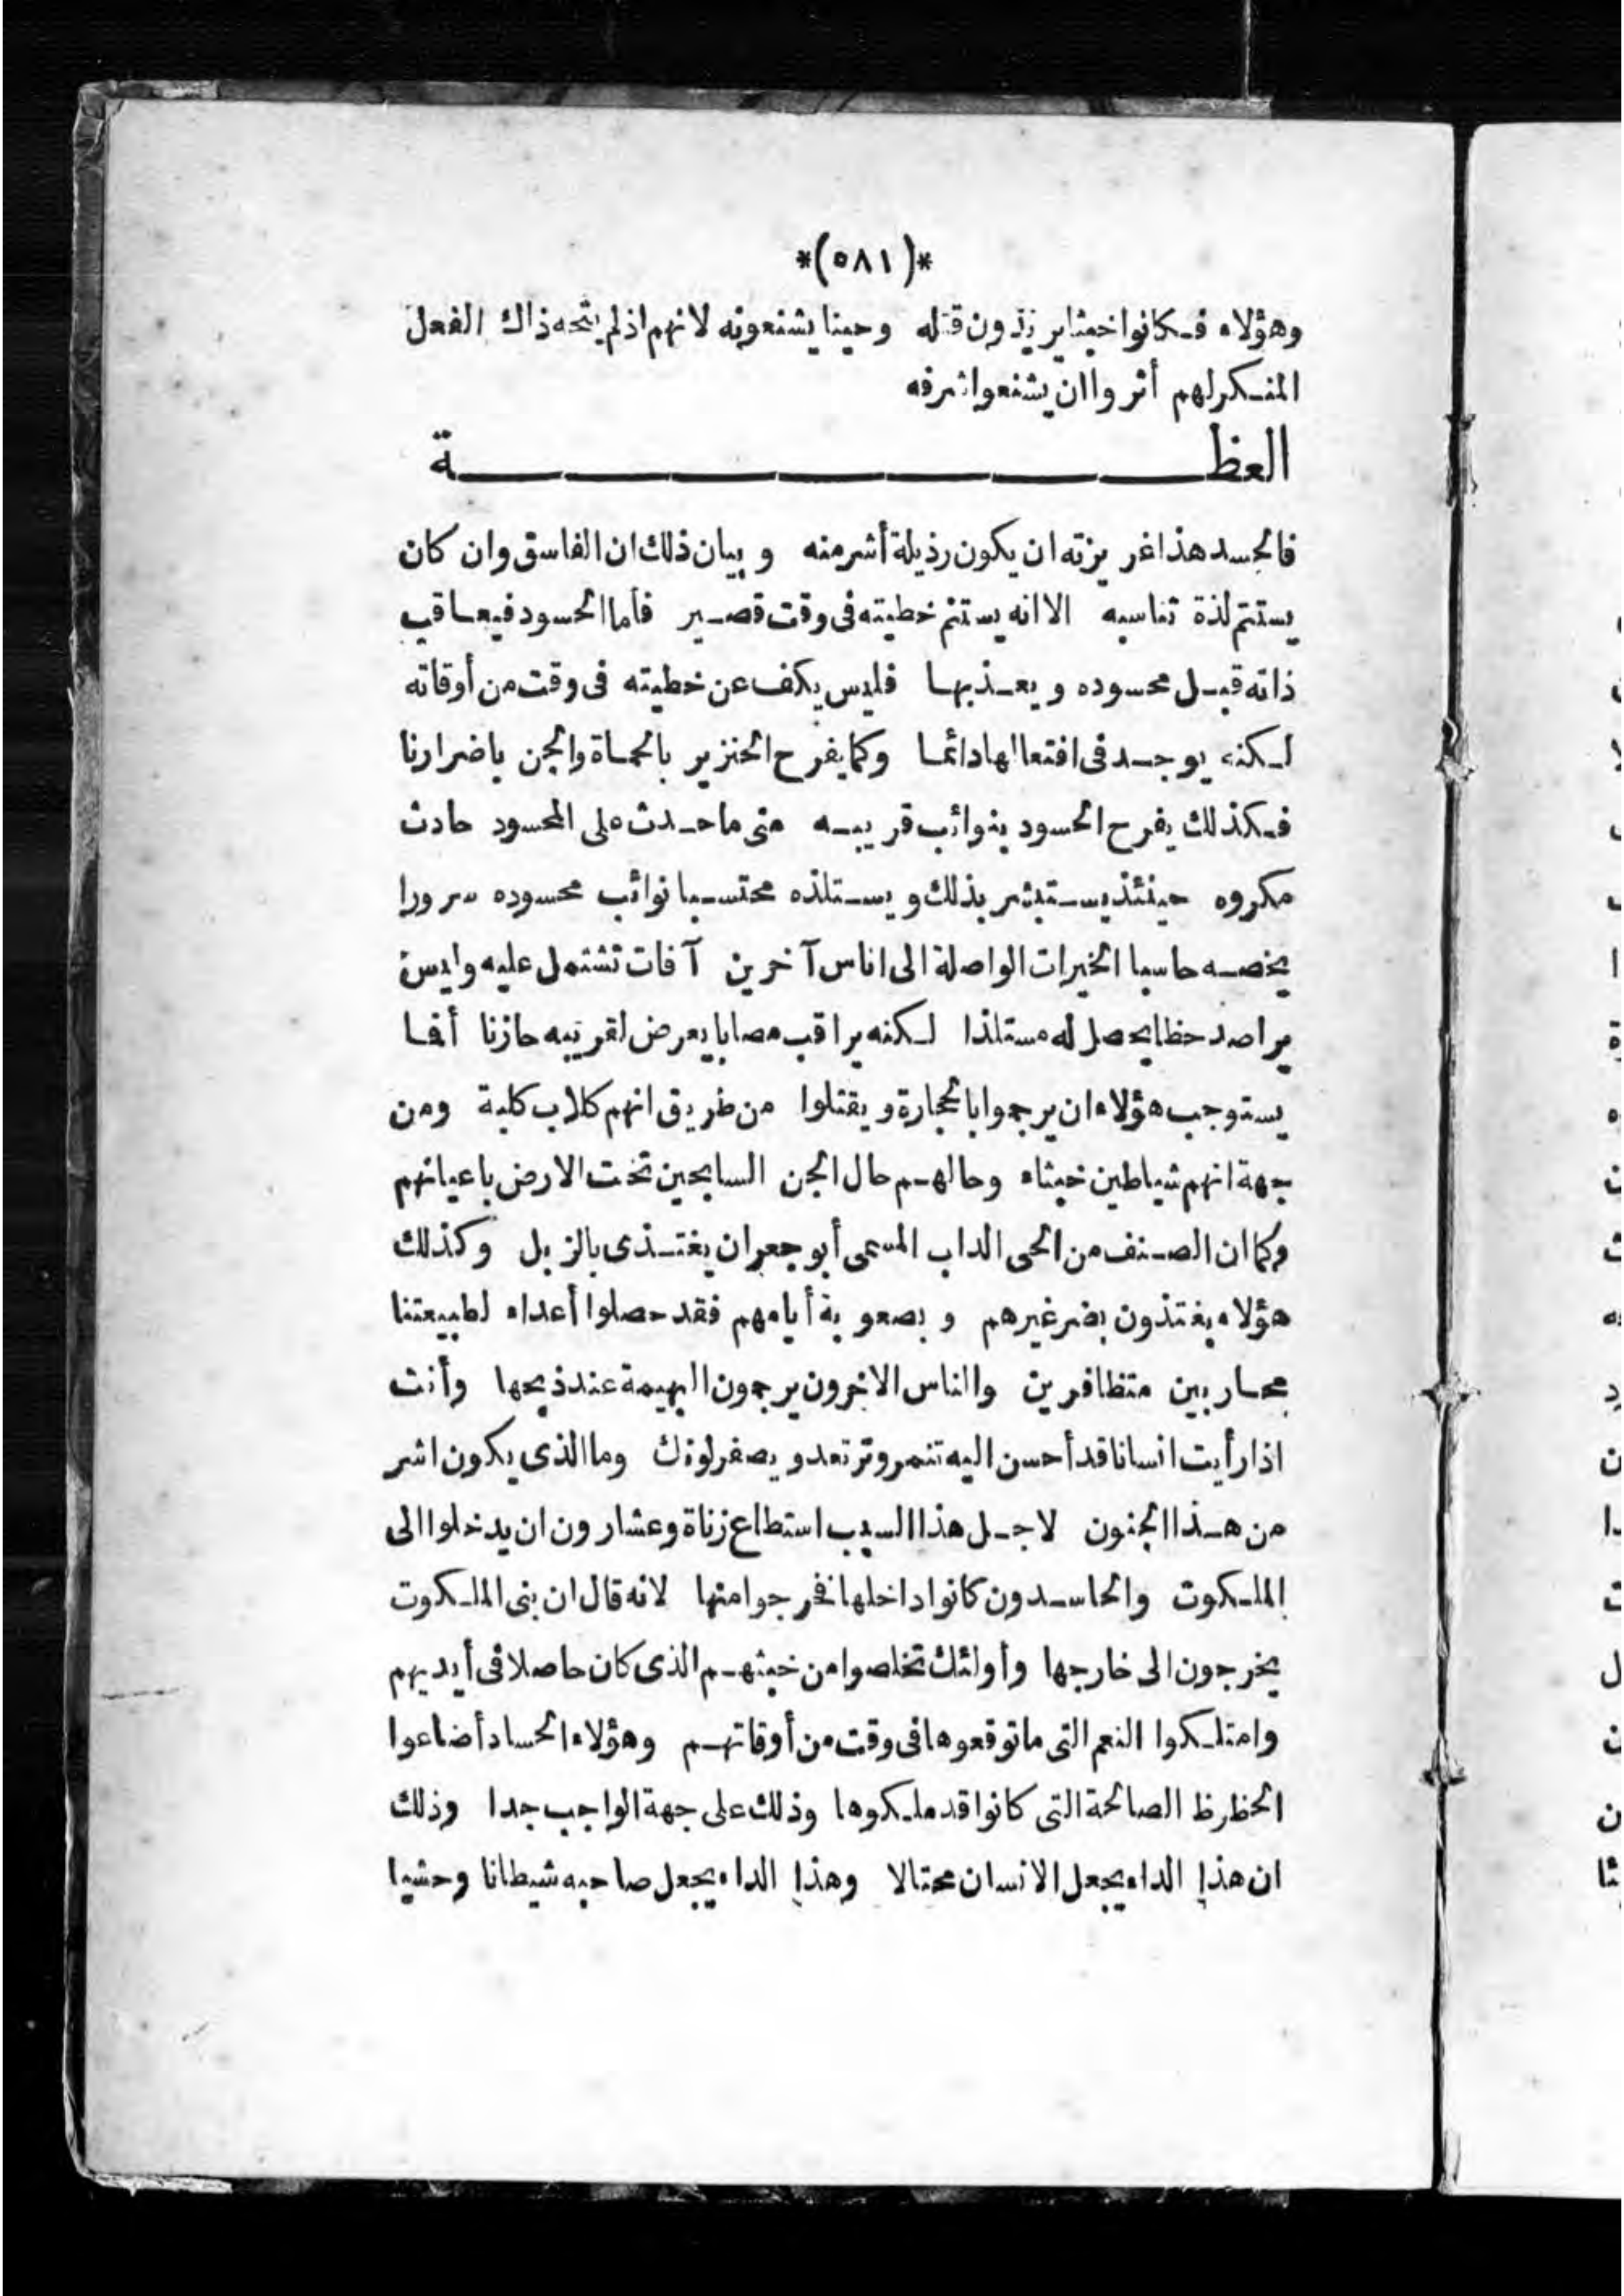 *(٥٨١)*
وهؤلاء فكانوا حينا يريدون قتله وحينا يشنعونه لانهم اذلم يتجه ذاك الفعل
المنكر لهم أثروا ان يشنعوا شرفه
العظة
فالحسد هذا غريزته ان يكون رذيلة أشر منه وبيان ذلك ان الفاسق وان كان
يستتم لذة تناسبه الا انه يستتم خطيته فى وقت قصير فأما الحسود فيعاقب
ذاته قبل محسوده ويعذبها فليس يكف عن خطيته فى وقت من أوقاته
لكنه يوجد فى افتعالها دائما وكما يفرح الخنزير بالحماة والجن باضرارنا
فكذلك يفرح الحسود بنوائب قريبه متى ما حدث على المحسود حادث
مكروه حينئذ يستبشر بذلك ويستلذه محتسبا نوائب محسوده سرورا
يخصه حاسبا الخيرات الواصلة الى اناس آخرين آفات تشتمل عليه وليس
يراصد حظا يحصل له مستلذا لكنه يراقب مصابا يعرض لقريبه حازنا أفما
يستوجب هؤلاء ان يرجموا بالحجارة ويقتلوا من طريق انهم كلاب كلبة ومن
جهة انهم شياطين خبثاء وحالهم حال الجن السابحين تحت الارض باعيانهم
وكما ان الصنف من الحى الداب المسمى أبو جعران يغتذى بالزبل وكذلك
هؤلاء يغتذون بضر غيرهم وبصعوبة أيامهم فقد حصلوا أعداء لطبيعتنا
محاربين متظافرين والناس الاخرون يرحمون البهيمة عند ذبحها وأنت
اذا رأيت انسانا قد أحسن اليه تتنمر وترتعد ويصفر لونك وما الذى يكون اشر
من هذا الجنون لاجل هذا السبب استطاع زناة وعشارون ان يدخلوا الى
الملكوت والحاسدون كانوا داخلها فخرجوا منها لانه قال ان بنى الملكوت
يخرجون الى خارجها وأولئك تخلصوا من خبثهم الذى كان حاصلا فى أيديهم
وامتلكوا النعم التى ما توقعوها فى وقت من أوقاتهم وهؤلاء الحساد أضاعوا
الحظرظ الصالحة التى كانوا قد ملكوها وذلك على جهة الواجب جدا وذلك
ان هذا الداء يجعل الانسان محتالا وهذا الداء يجعل صاحبه شيطانا وحشيا